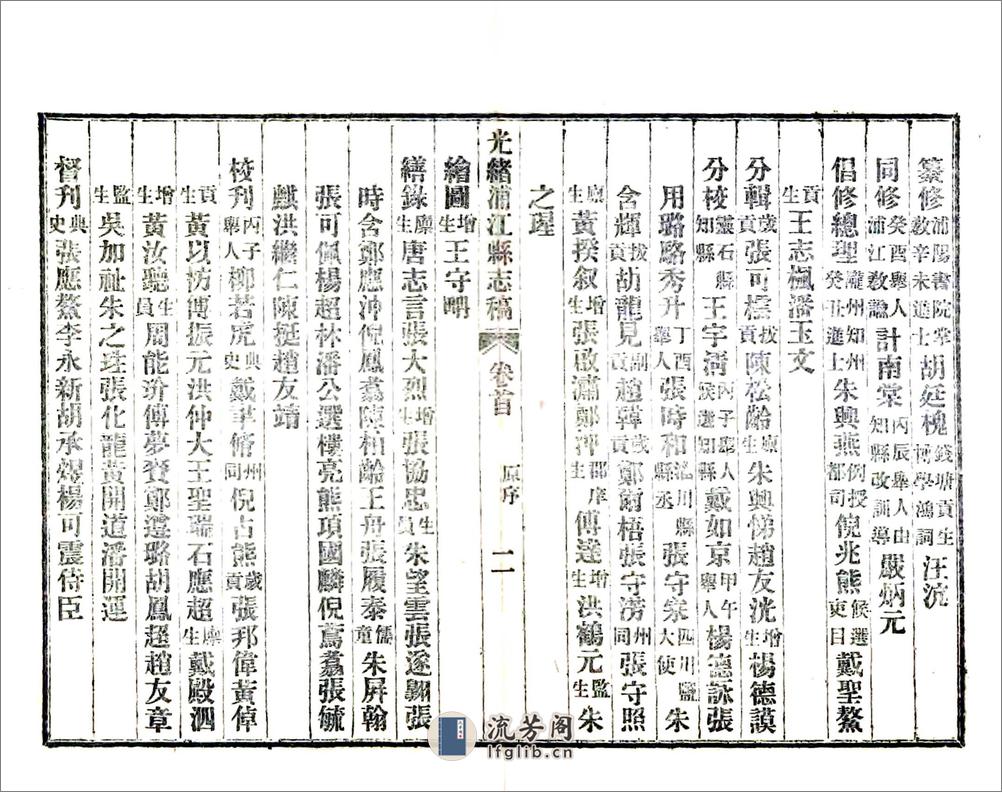 纂修浦陽書院掌教辛未進士胡廷槐錢塘貢生博學鴻詞汪沆
同修癸酉舉人浦江教諭計南棠丙辰舉人由知縣改訓導嚴炳元
倡修總理瀘州知州癸丑進士朱興燕例授都司倪兆熊候選吏目戴聖鰲
貢生王志楓潘玉文
分輯歲貢張可標拔貢陳松齡廩生朱興悌趙友洸增生楊德謨
分校靈石縣知縣王宇濟丙子舉人候選知縣戴如京甲午舉人楊德詠張
用璐駱秀升丁酉舉人張時和縣丞張守寀四川鹽大使朱
含輝拔貢胡龍見副貢趙韓歲貢鄭爾梧張守滂州同張守照
廩生黃揆敘增生張啟濤鄭沖郡庠生傅達增生洪鶴元監生朱
之瑆
繪圖增生王守疄
繕錄廩生唐志言張大烈增生張協忠生員朱望雲張遂翺張
時含鄭應沖倪鳳翥陳柏齡王舟張履泰儒童朱屏翰
張可佩楊超林潘公選樓亮熊項國麟倪鳶翥張毓
麒洪繼仁陳挺趙友靖
校刊丙子舉人柳若虎典史戴芈脩州同倪占熊歲貢張邦偉黃倬
貢生黃以枋傅振元洪仲大王聖瑞石應超廩生戴殿泗
增生黃汝聽生員周能玠傅夢賚鄭遵璐胡鳳超趙友章
監生吳加祉朱之珪張化龍黃開道潘開運
督刊典史張應鰲李永新胡承焜楊可震侍臣
光緒浦江縣志稿 卷首 原序 二
流芳阁
lfglib.cn